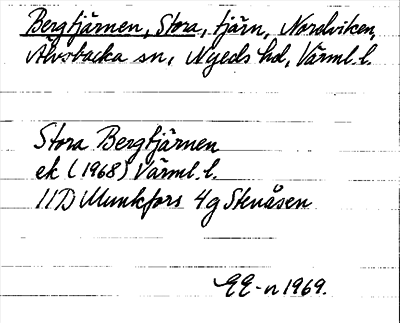 Bergtjärnen, Stora, tjärn, Nordviken,
Älvsbacka sn, Nyeds hd, Värml. l.
Stora Bergtjärnen
ek (1968) Värml. l.
11D Munkfors 4g Stenåsen
EE-n 1969.